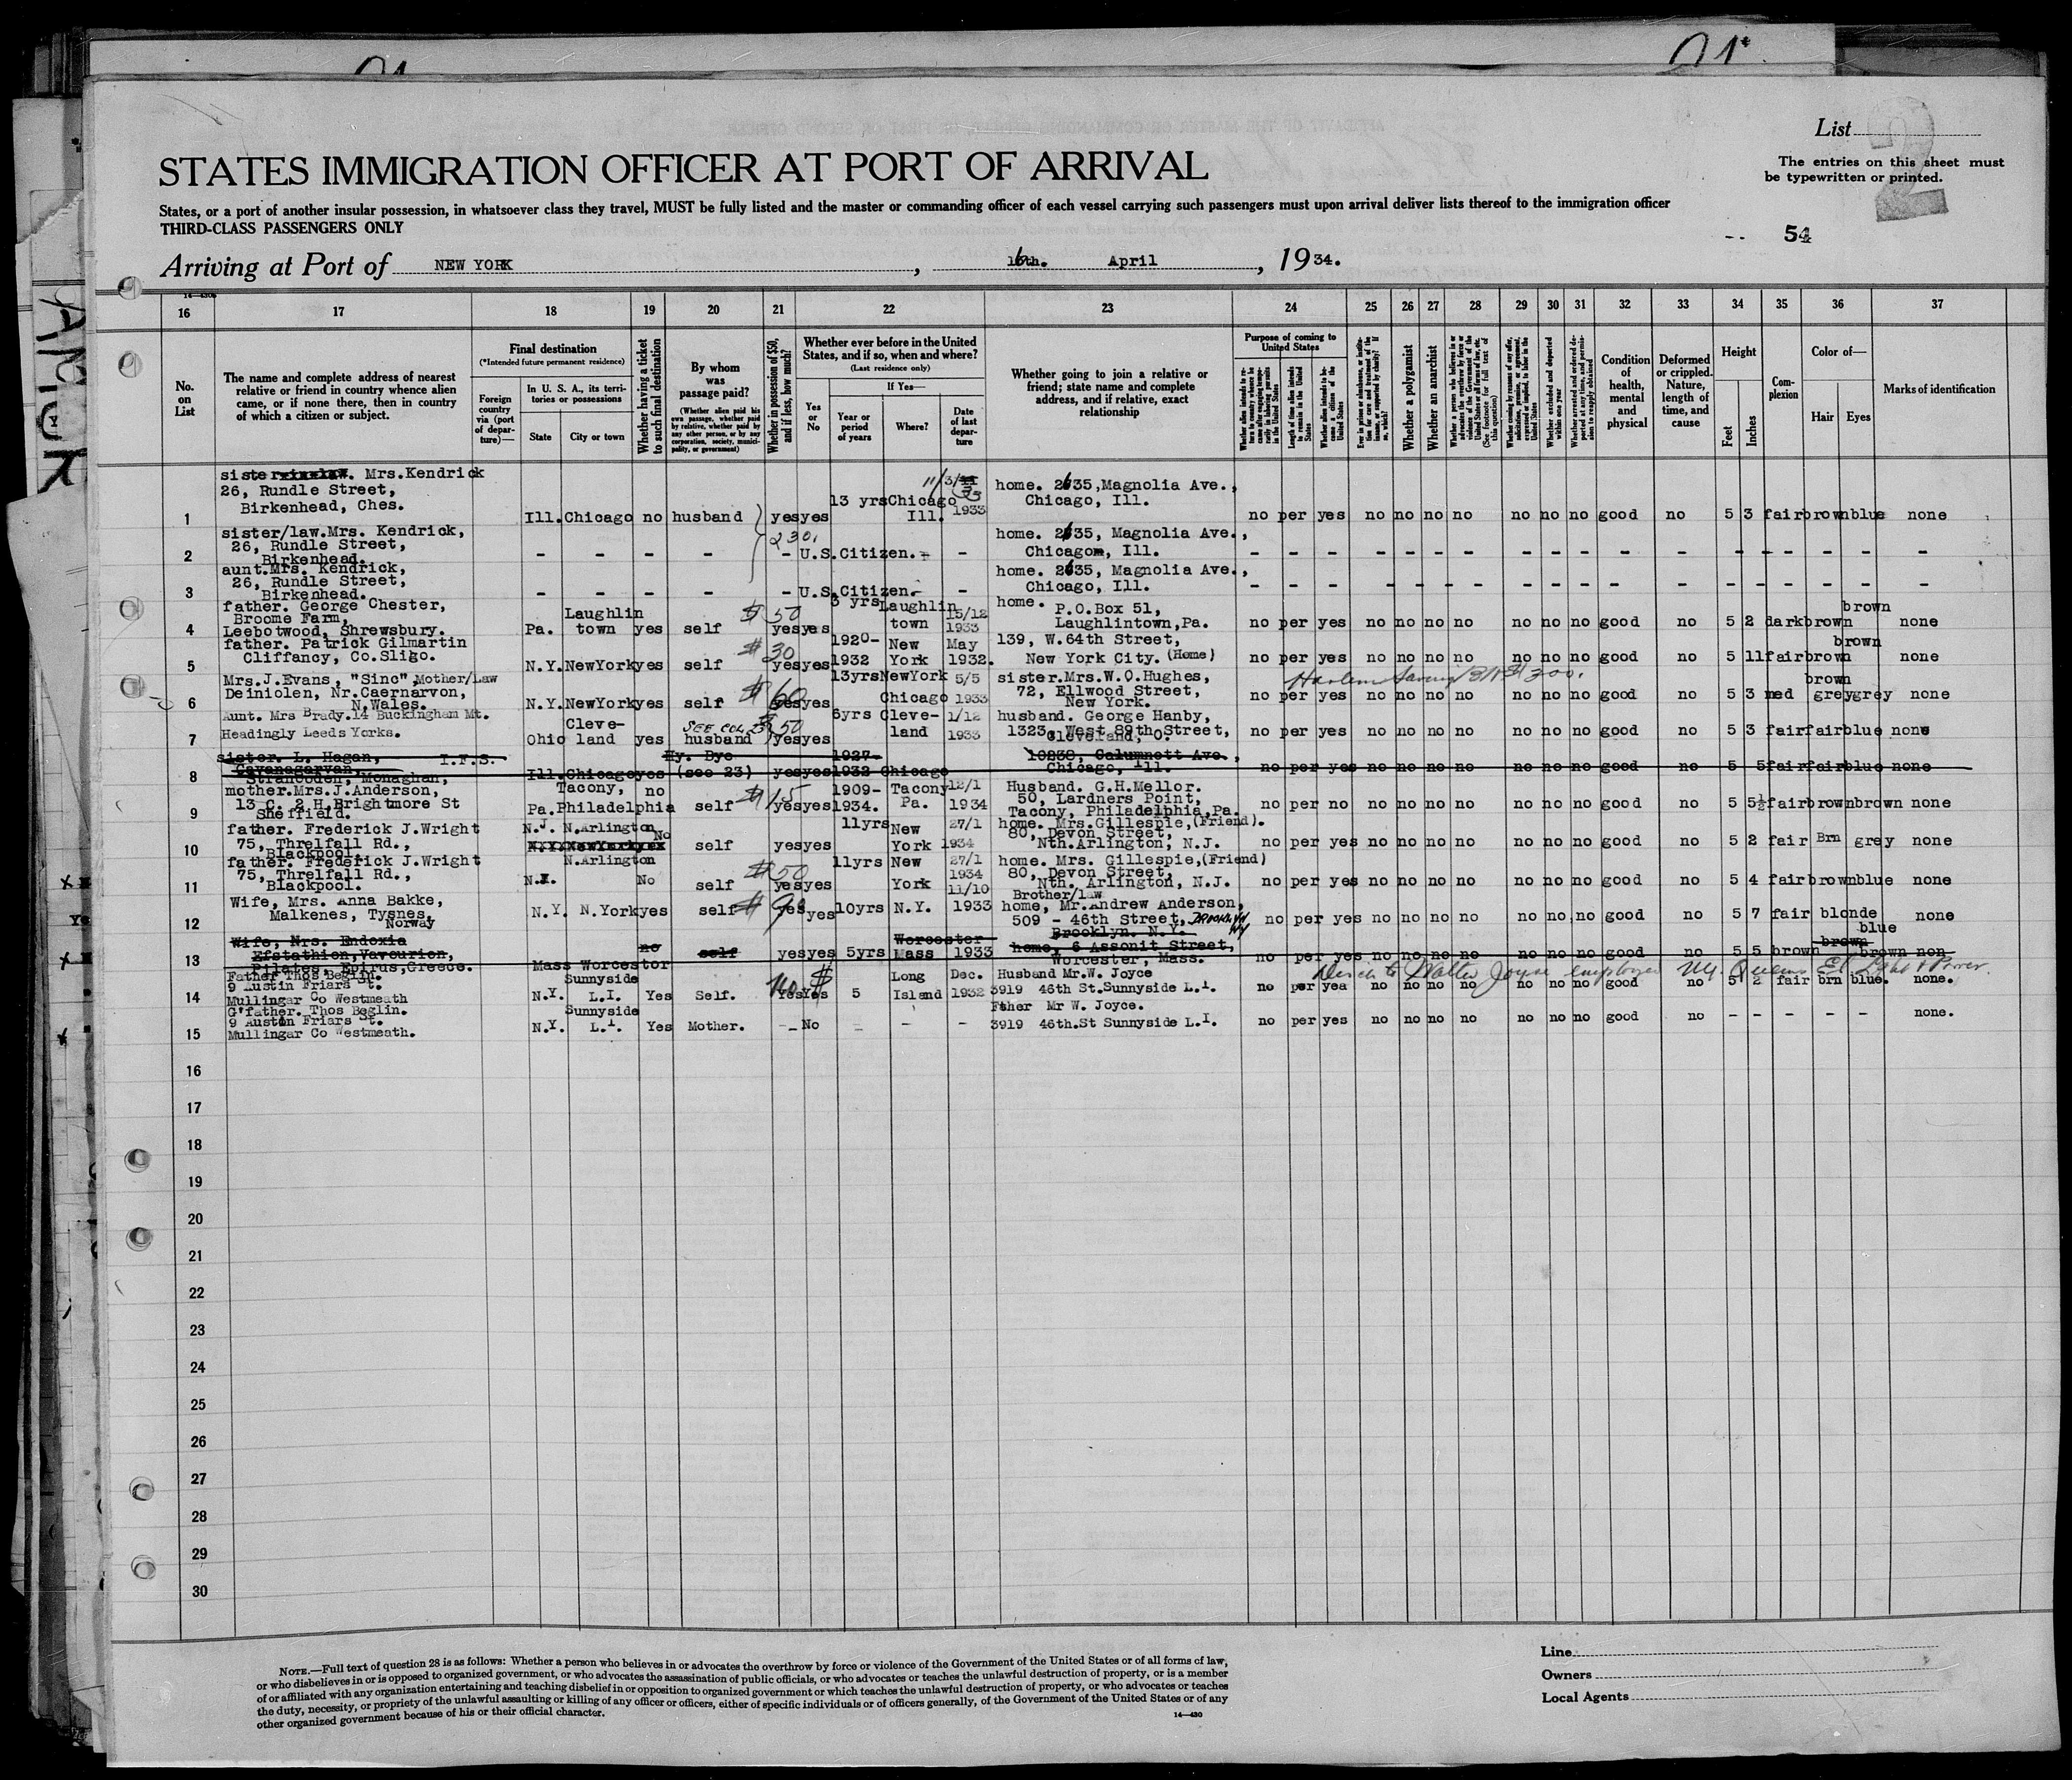 List 2
STATES IMMIGRATION OFFICER AT PORT OF ARRIVAL
The entries on this sheet must
be typewritten or printed.
States, or a port of another insular possession, in whatsoever class they travel, MUST be fully listed and the master or commanding officer of each vessel carrying such passengers must upon arrival deliver lists thereof to the immigration officer
THIRD-CLASS PASSENGERS ONLY
54
Arriving at Port of NEW YORK, 16th. April, 1934.
16 17 18 19 20 21 22 23 24 25 26 27 28 29 30 31 32 33 34 35 36 37
No. on List
The name and complete address of nearest relative or friend in country whence alien came, or if none there, then in country of which a citizen or subject.
Final destination
(*Intended future permanent residence)
Foreign country via (port of departure)—
In U. S. A., its territories or possessions
State
City or town
Whether having a ticket to such final destination
By whom was passage paid?
(Whether alien paid his own passage, whether paid by relative, whether paid by any other person, or by any corporation, society, municipality, or government)
Whether in possession of $50, and if less, how much?
Whether ever before in the United States, and if so, when and where?
(Last residence only)
Yes or No
If Yes—
Year or period of years
Where?
Date of last departure
Whether going to join a relative or friend; state name and complete address, and if relative, exact relationship
Purpose of coming to United States
Whether a polygamist
Whether an anarchist
Condition of health, mental and physical
Deformed or crippled. Nature, length of time, and cause
Height
Feet
Inches
Complexion
Color of—
Hair
Eyes
Marks of identification
sister Mrs.Kendrick
26, Rundle Street,
Birkenhead, Ches.
1 Ill. Chicago no husband yes yes 13 yrs Chicago Ill. 1933 home. 2635, Magnolia Ave., Chicago, Ill. no per yes no no no no no no no good no 5 3 fair brown blue none
230.
sister/law.Mrs. Kendrick,
26, Rundle Street,
Birkenhead.
2 - - - - - U.S.Citizen. - - home. 2635, Magnolia Ave., Chicago, Ill.
aunt.Mrs. Kendrick,
26, Rundle Street,
Birkenhead.
3 - - - - - U.S.Citizen. - - home. 2635, Magnolia Ave., Chicago, Ill.
father. George Chester,
Broome Farm,
Leebotwood, Shrewsbury.
4 Pa. Laughlin town yes self $50 yes yes 3 yrs Laughlin town 15/12 1933 home. P.O.Box 51, Laughlintown,Pa. no per yes no no no no no no no good no 5 2 dark brown brown none
father. Patrick Gilmartin
Cliffancy, Co.Sligo.
5 N.Y. NewYork yes self $30 yes yes 1920-1932 New York May 1932. 139, W.64th Street, New York City. (Home) no per yes no no no no no no no good no 5 11 fair brown brown none
Mrs.J.Evans, "Sinc", Mother/Law
Deiniolen, Nr.Caernarvon,
N.Wales.
6 N.Y. NewYork yes self $60 yes yes 13yrs NewYork Chicago 5/5 1933 sister.Mrs.W.O.Hughes, 72, Ellwood Street, New York. no per yes no no no no no no no good no 5 3 med grey grey none
Aunt. Mrs Brady.14 Buckingham Mt.
Headingly Leeds Yorks.
7 Ohio Cleve-land yes SEE COL 23 husband $50 yes yes 6yrs Cleve-land 1/12 1933 husband. George Hanby, 1323, West 89th Street, Cleveland, O. no per yes no no no no no no no good no 5 3 fair fair blue none
sister. L. Hagan, I.F.S.
Monaghan,
8 Ill. Chicago yes (see 23) yes yes 1927-1932 Chicago 10838, Calumnett Ave., Chicago, Ill. no per yes no no no no no no no good no 5 5 fair fair blue none
mother.Mrs.J.Anderson,
13 C. 2 H,Brightmore St
Sheffield.
9 Pa. Tacony, Philadelphia no self $15 yes yes 1909-1934. Tacony Pa. 12/1 1934 Husband. G.H.Mellor. 50, Lardners Point, Tacony, Philadelphia,Pa. no per no no no no no no no no good no 5 5½ fair brown brown none
father. Frederick J.Wright
75, Threlfall Rd.,
Blackpool.
10 N.J. N.Arlington No self yes yes 11yrs New York 27/1 1934 home. Mrs.Gillespie,(Friend). 80, Devon Street, Nth.Arlington, N.J. no per yes no no no no no no no good no 5 2 fair Brn grey none
father. Frederick J.Wright
75, Threlfall Rd.,
Blackpool.
11 N.J. N.Arlington No self $50 yes yes 11yrs New York 27/1 1934 home. Mrs. Gillespie,(Friend) 80, Devon Street, Nth. Arlington, N.J. no per yes no no no no no no no good no 5 4 fair brown blue none
Wife, Mrs. Anna Bakke,
Malkenes, Tysnes,
Norway
12 N.Y. N.York yes self yes yes 10yrs N.Y. 11/10 1933 Brother/law home, Mr.Andrew Anderson, 509 - 46th Street, Brooklyn NY Brooklyn. N.Y. no per yes no no no no no no no good no 5 7 fair blonde blue none
Wife, Mrs. Endoxia
Efstathion,Vavourion,
Pilates, Epirus,Greece.
13 Mass Worcester no self yes yes 5yrs Worcester Mass 1933 home, 6 Assonit Street, Worcester, Mass. no per yes no no no no no no no good no 5 5 brown brown brown non
Father Thos Beglin.
9 Austin Friars St.
Mullingar Co Westmeath
14 N.Y. Sunnyside L.I. Yes Self. $140 Yes Yes 5 Long Island Dec. 1932 Husband Mr.W. Joyce 3919 46th St.Sunnyside L.I. no per yea no no no no no no no good no 5 2 fair brn blue. none.
G'father. Thos Beglin.
9 Austin Friars St.
Mullingar Co Westmeath.
15 N.Y. Sunnyside L.I. Yes Mother. -- No - - - Fther Mr W. Joyce. 3919 46th.St Sunnyside L.I. no per yes no no no no no no no good no - - - - - none.
16
17
18
19
20
21
22
23
24
25
26
27
28
29
30
NOTE.—Full text of question 28 is as follows: Whether a person who believes in or advocates the overthrow by force or violence of the Government of the United States or of all forms of law,
or who disbelieves in or is opposed to organized government, or who advocates the assassination of public officials, or who advocates or teaches the unlawful destruction of property, or is a member
of or affiliated with any organization entertaining and teaching disbelief in or opposition to organized government or which teaches the unlawful destruction of property, or who advocates or teaches
the duty, necessity, or propriety of the unlawful assaulting or killing of any officer or officers, either of specific individuals or of officers generally, of the Government of the United States or of any
other organized government because of his or their official character.
14—430
Line
Owners
Local Agents